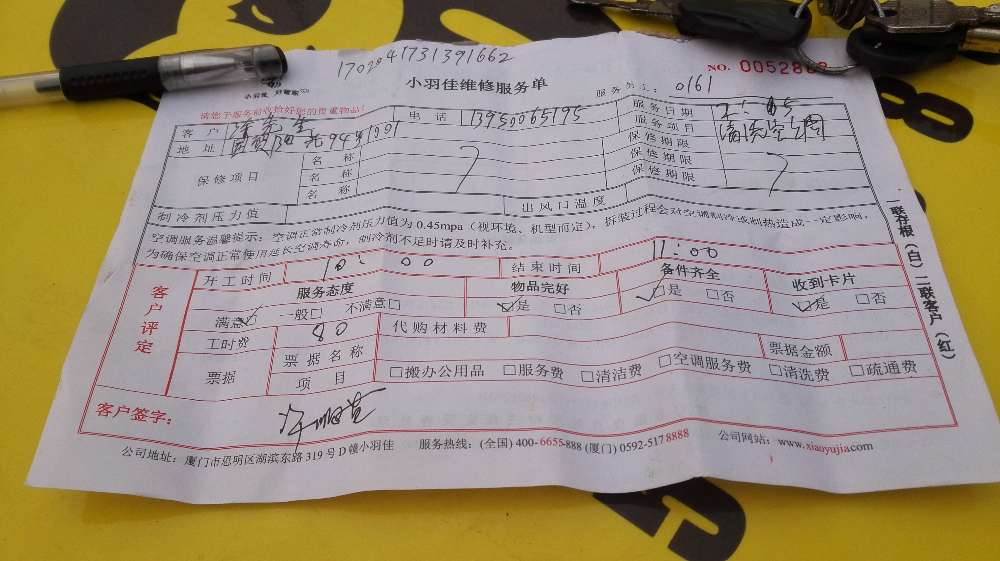 1702041731391662
小羽佳维修服务单
NO. 0052862
服务员工: 0161
请您于服务前收拾好您的贵重物品!
客户
电话 13950065195
服务日期 2:05
地址
服务项目 清洗空调
保修项目
名称
保修期限
名称
保修期限
名称
保修期限
制冷剂压力值
出风口温度
空调服务温馨提示: 空调正常制冷剂压力值为0.45mpa (视环境、机型而定), 拆装过程会对空调制冷或制热造成一定影响,
为确保空调正常使用延长空调寿命, 制冷剂不足时请及时补充。
客户评定
开工时间 10:00
结束时间 11:00
服务态度
物品完好
备件齐全
收到卡片
满意□ 一般□ 不满意□
□是 □否
□是 □否
□是 □否
工时费 80
代购材料费
票据
票据名称
票据金额
项目
□搬办公用品 □服务费 □清洁费 □空调服务费 □清洗费 □疏通费
客户签字:
公司地址: 厦门市思明区湖滨东路319号D幢小羽佳
服务热线: (全国) 400-6655-888 (厦门) 0592-5178888
公司网站: www.xiaoyujia.com
一联存根(白) 二联客户(红)